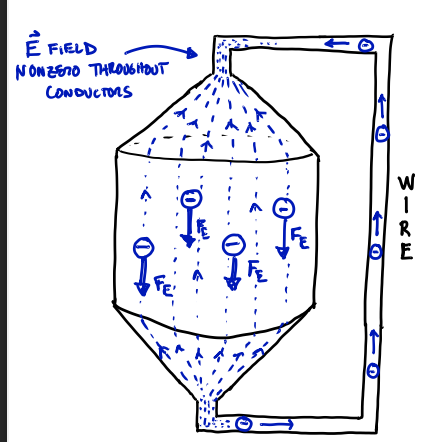 E⃗ FIELD
NONZERO THROUGHOUT
CONDUCTORS
WIRE
F_E
F_E
F_E
F_E